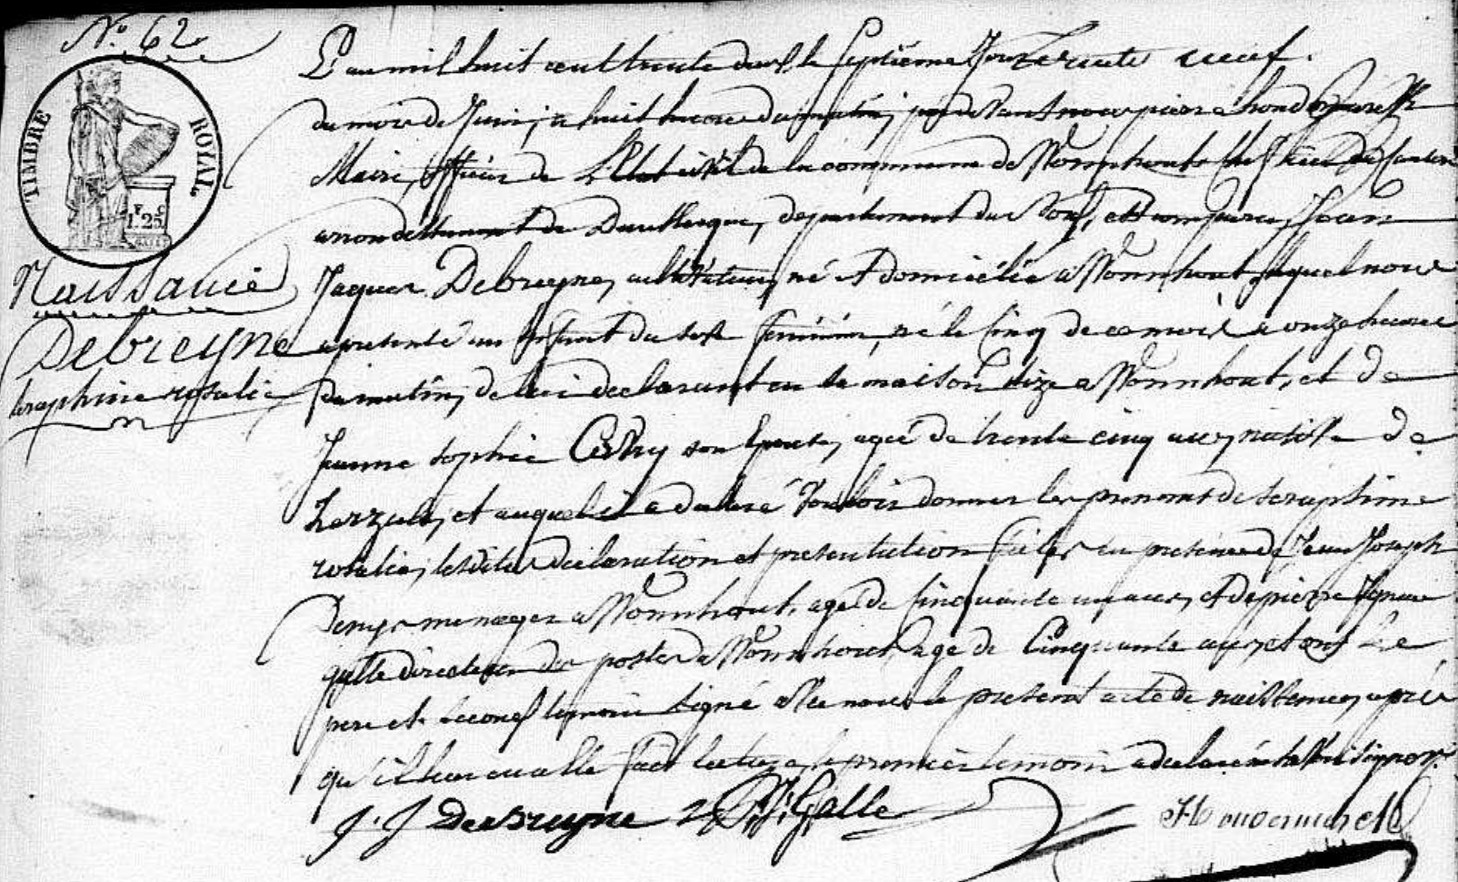 N.° 62
TIMBRE ROYAL
1 F. 25 C.
Naissance
Debreyne
seraphine rosalie
L'an mil huit cent trente neuf, le septieme Jour
du mois de Juin, a huit heures du matin, par devant nous pierre
Maire, officier de L'Etat civil de la commune de Wormhout, chef lieu de Canton
arrondissement de Dunkerque, département du Nord, est comparu, Jean
Jaques Debreyne, cultivateur, né et domicilié a Wormhout, lequel nous
a presenté un Enfant du sexe feminin, né le Cinq de ce mois a onze heures
du matin, de lui declarant en sa maison size a Wormhout, et de
Jeanne sophie son Epouse, agée de trente cinq ans, native de
et auquel il a declaré Vouloir donner les prenoms de seraphine
rosalie, lesdites declaration et presentation faites en presence de Jean Joseph
Denys menager a Wormhout, agé de Cinquante un ans, et de pierre Ignace
galle directeur des postes a Wormhout, agé de Cinquante ans, et ont Le
pere et second temoin signé avec nous le present acte de naissance, apres
qu'il leur en a eté fait lecture, le premier temoin a declaré ne savoir signer.
J. J. Debreyne P. I. Galle